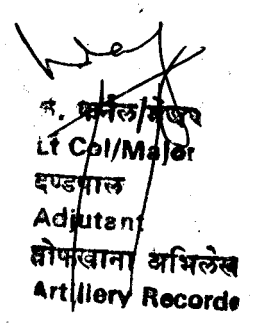 ले. कर्नल/मेजर
Lt Col/Major
दण्डपाल
Adjutant
तोपखाना अभिलेख
Artillery Records